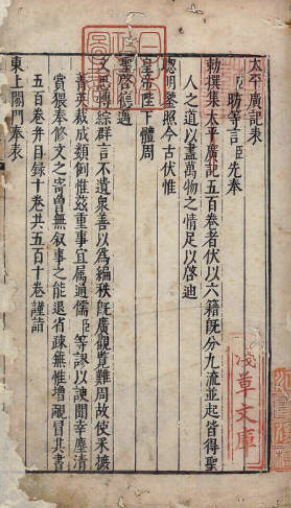 太平廣記表
臣昉等言臣先奉
勑撰集太平廣記五百卷者伏以六籍既分九流並起皆得聖
人之道以盡萬物之情足以啓迪
聰明鑒照今古伏惟
皇帝陛下體周
聖啓德邁
文思博綜群言不遺衆善以爲編秩既廣觀覽難周故使采摭
菁英裁成類例惟兹重事宜属通儒臣等謬以謏聞幸塵清
賞猥奉修文之寄曾無叙事之能退省疎蕪惟增靦冒其書
五百卷并目録十卷共五百十卷謹詣
東上閣門奉表
淺草文庫